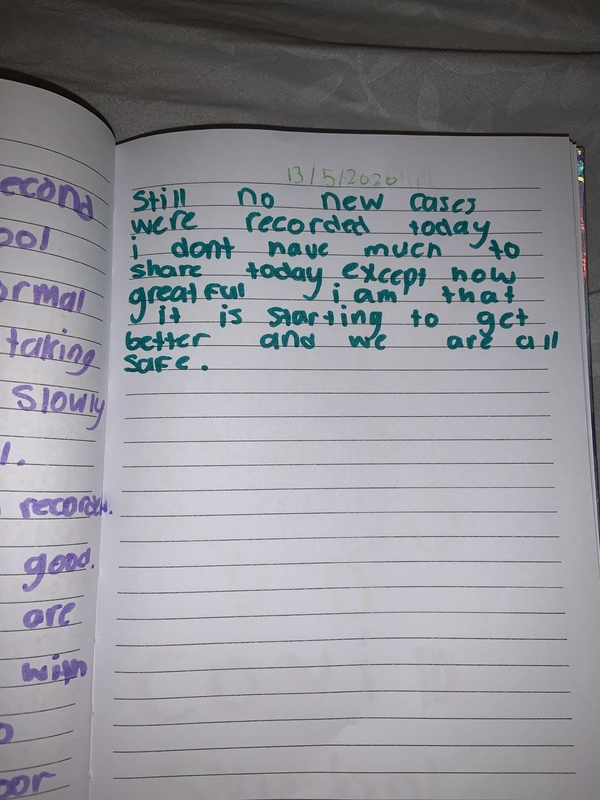 econd
ool
ormal
taking
slowly
l.
recorded.
good.
are
with
o
oor
13/5/2020
Still no new cases
were recorded today
i dont have much to
share today except how
greatful i am that
it is starting to get
better and we are all
safe.